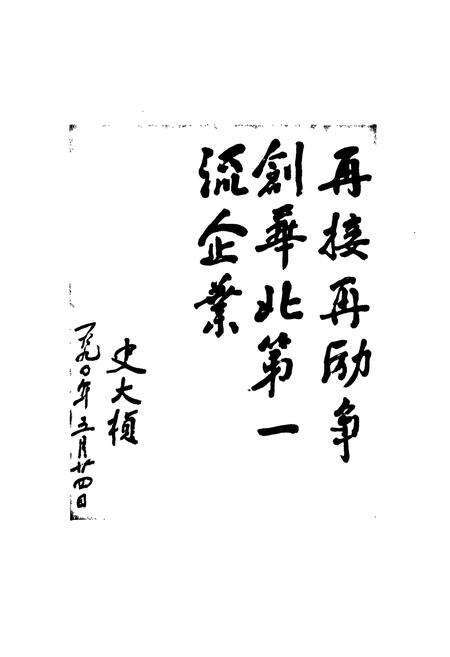 再接再励争
創華北第一
流企業
史大楨
一九九〇年三月廿四日